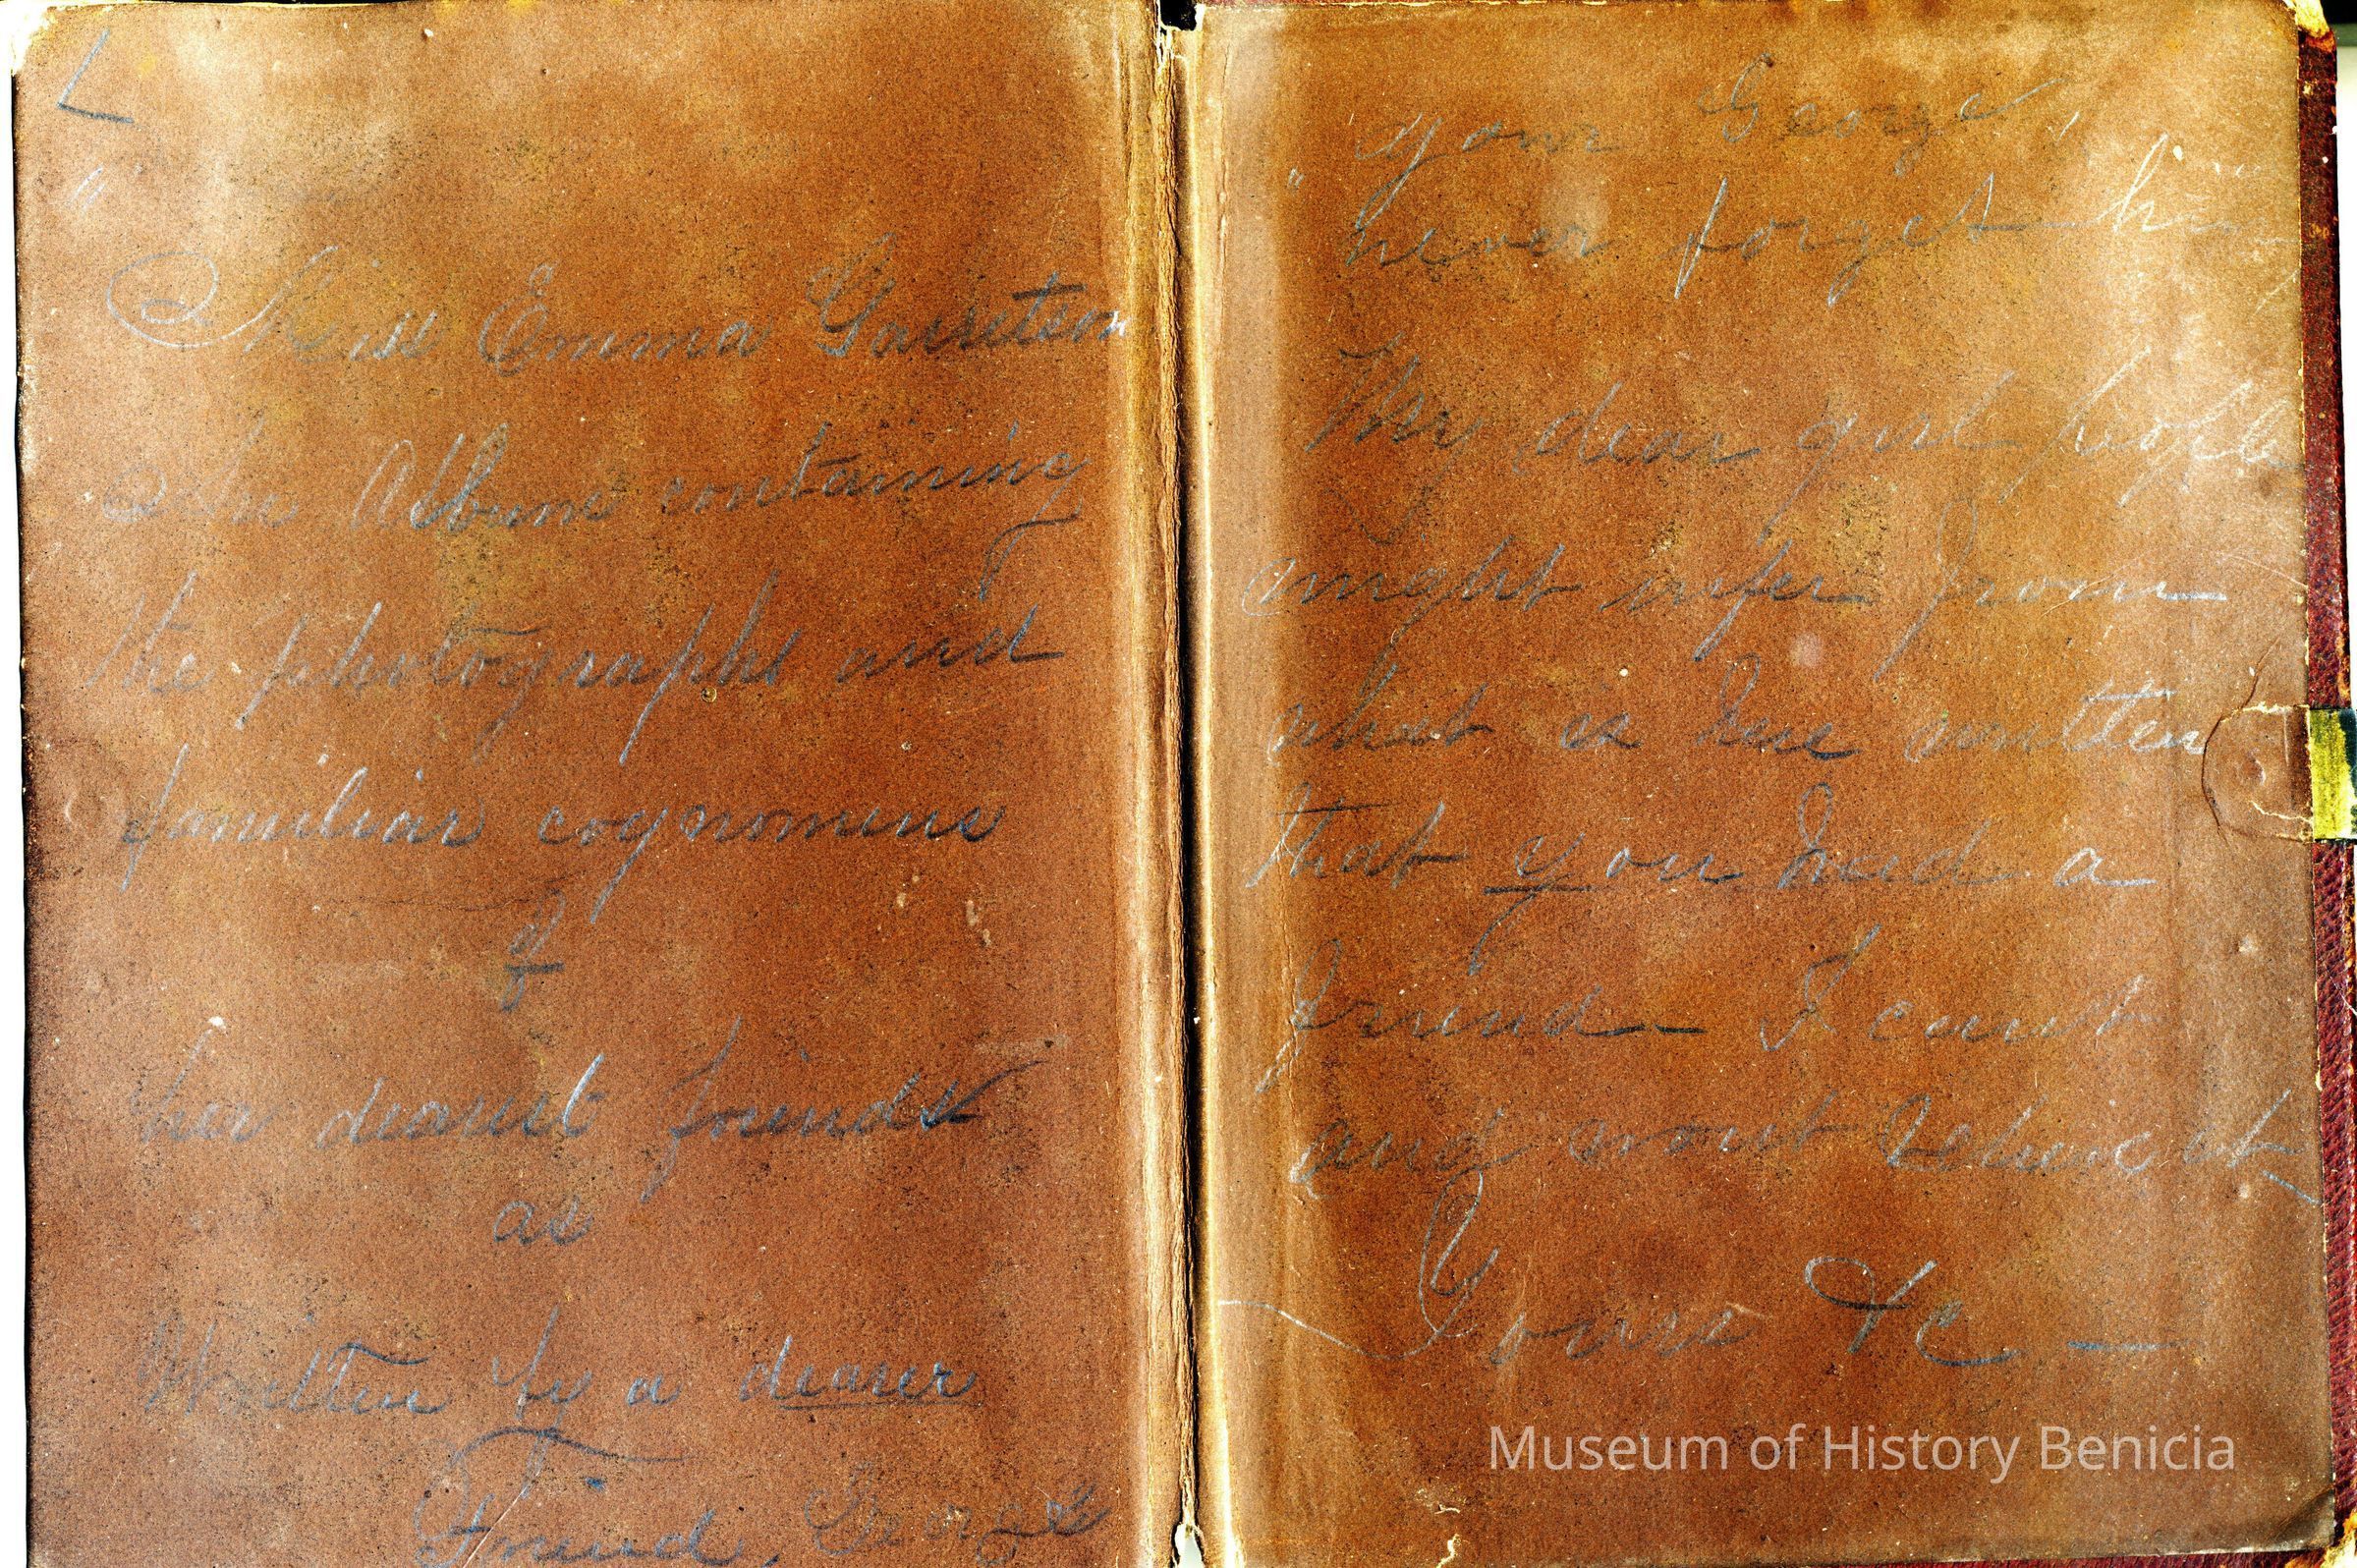 Miss Emma Garretson
The Album containing
the photographs and
familiar cognomens
of
her dearest friends
as
Written by a dearer
Friend, George
"Your George"
never forget him
My dear girl people
might infer from
what is here written
that you had a
friend — I cant
and wont believe it
Yours &c —
Museum of History Benicia